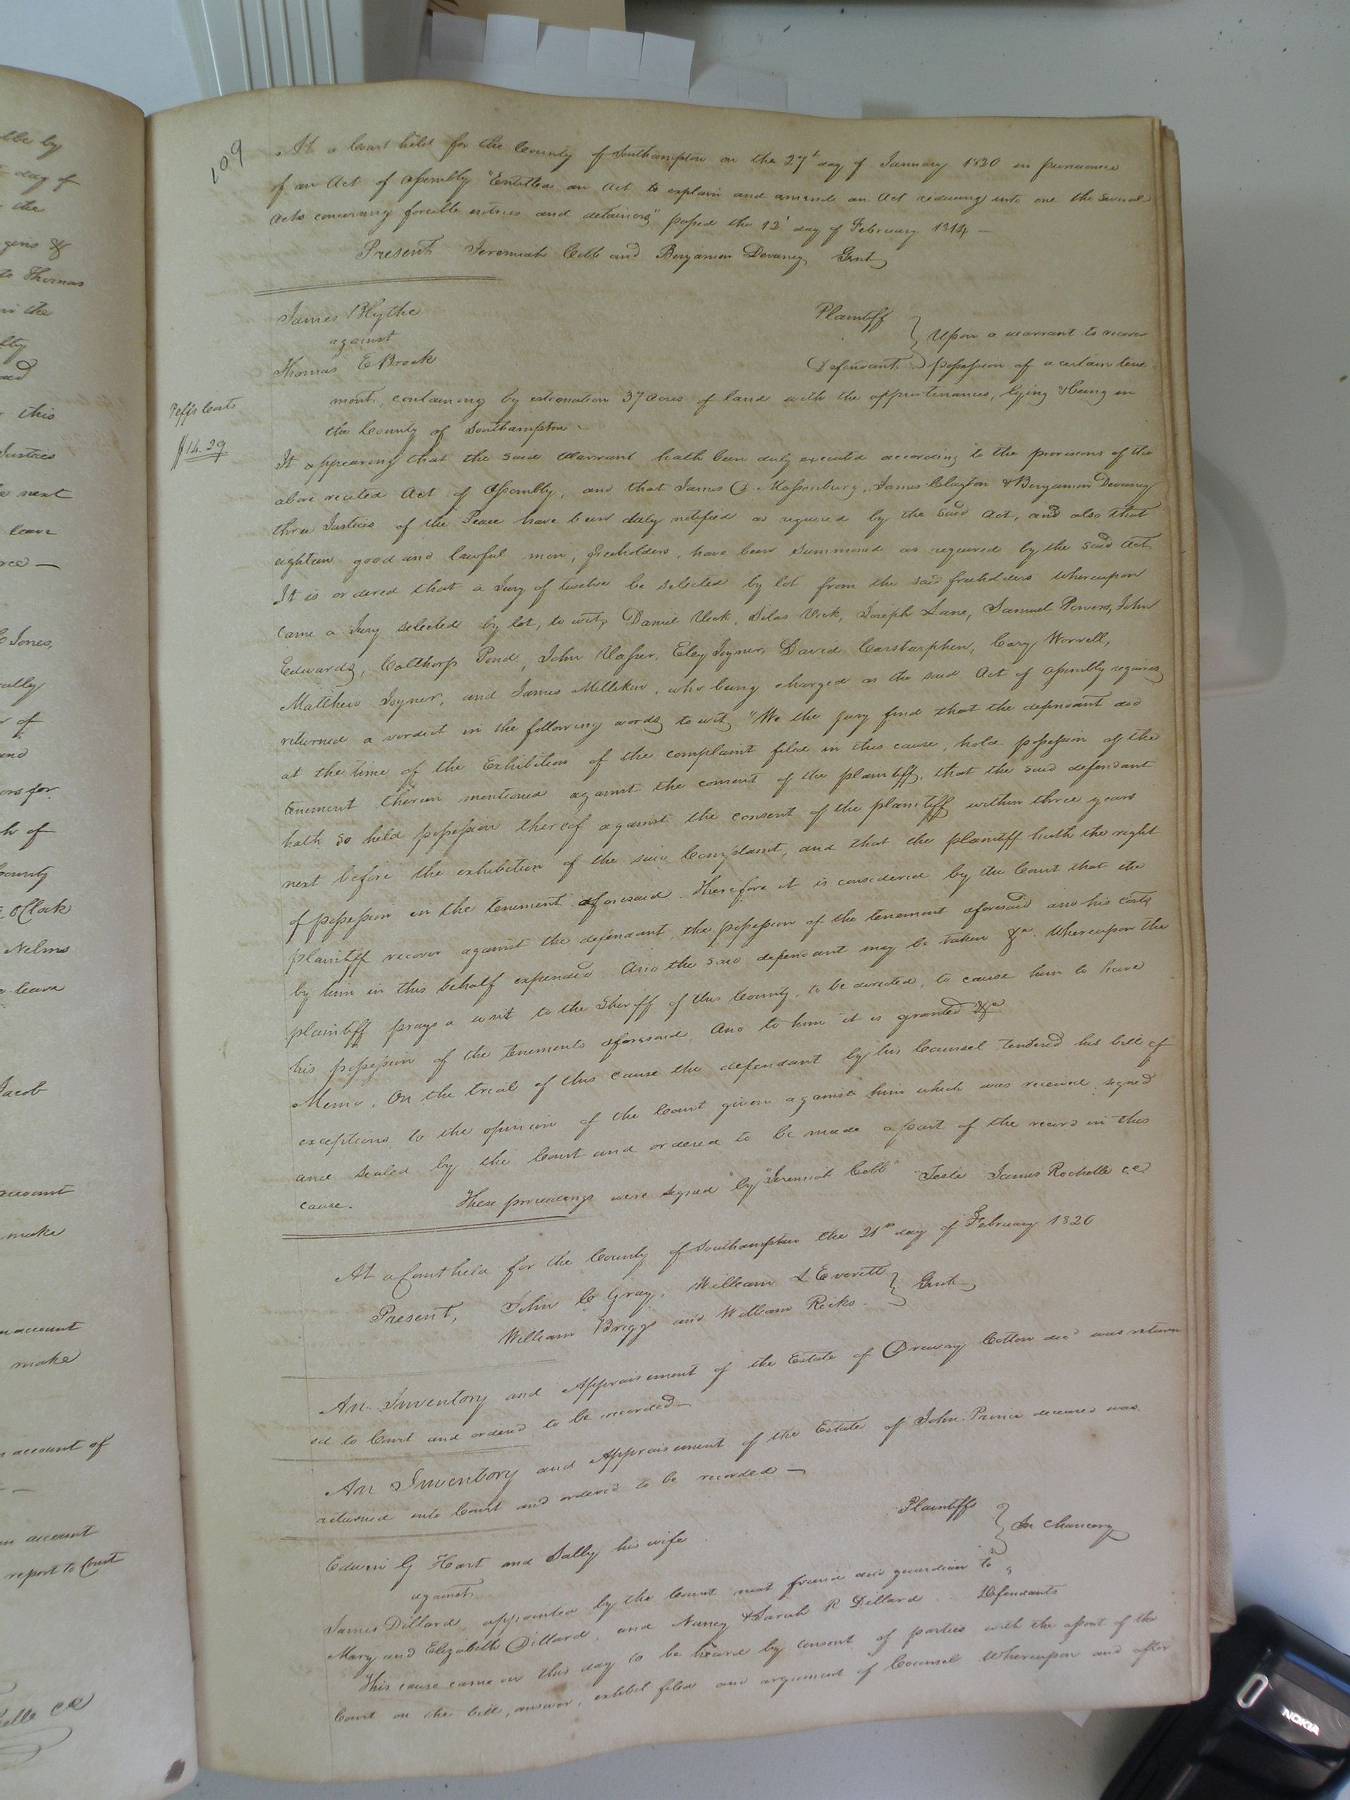 109
At a Court held for the County of Southampton on the 27th day of January 1820 in pursuance
of an Act of Assembly "Entitled an Act to explain and amend an Act reducing into one the several
Acts concerning forcible entries and detainers" passed the 12th day of February 1814 —
Present Jeremiah Cobb and Benjamin Devany Gent
James Blythe Plaintiff
against } Upon a warrant to recover
Thomas E Brock Defendant } possession of a certain tene
ment, containing by estimation 37 acres of land with the appurtenances, lying & being in
the County of Southampton -
Peffs Costs
$14.29
It appearing that the said Warrant hath been duly executed according to the provisions of the
above recited Act of Assembly, and that James D. Massenburg, James Clayton & Benjamin Devany
three Justices of the Peace have been duly notified as required by the said Act, and also that
eighteen good and lawful men, freeholders, have been summoned as required by the said Act
It is ordered that a Jury of twelve be selected by lot from the said freeholders Whereupon
came a Jury selected by lot, to wit, Daniel Vick, Silas Vick, Joseph Lane, Samuel Powers, John
Edwards, Calthorp Pond, John Vasser, Eley Joyner, David Carstarphen, Cary Worrell,
Matthew Joyner, and James Millikin, who being charged as the said Act of Assembly requires
returned a verdict in the following words to wit, "We the jury find that the defendant did
at the time of the Exhibition of the complaint filed in this cause, hold possession of the
tenement therein mentioned against the consent of the plaintiff, that the said defendant
hath so held possession thereof against the consent of the plaintiff within three years
next before the exhibition of the said Complaint, and that the plaintiff hath the right
of possession in the tenement aforesaid. Therefore it is considered by the Court that the
plaintiff recover against the defendant the possession of the tenement aforesaid and his costs
by him in this behalf expended And the said defendant may be taken &c. Whereupon the
plaintiff prays a writ to the Sheriff of this County, to be directed, to cause him to have
his possession of the tenements aforesaid, And to him it is granted &c
Memo. On the trial of this cause the defendant by his Counsel tendered his bill of
exceptions to the opinion of the Court given against him which was received signed
and sealed by the Court and ordered to be made a part of the record in this
cause. These proceedings were signed by "Jeremiah Cobb" Teste James Rochelle CC
At a Court held for the County of Southampton the 21st day of February 1820
Present, John C Gray, William L Everitt } Gent
William Briggs and William Ricks
An Inventory and Appraisement of the Estate of Drewry Cotton decd was return
ed to Court and ordered to be recorded —
An Inventory and Appraisement of the Estate of John Prince deceased was
returned into Court and ordered to be recorded —
Plaintiffs
Edwin G Hart and Sally his wife } In Chancery
against
James Dillard appointed by the Court next friend and guardian to
Mary and Elizabeth Dillard, and Nancy & Sarah R Dillard Defendants
This cause came on this day to be heard by consent of parties with the assent of the
Court on the bill, answer, exhibit filed and argument of Counsel Whereupon and after
NOKIA